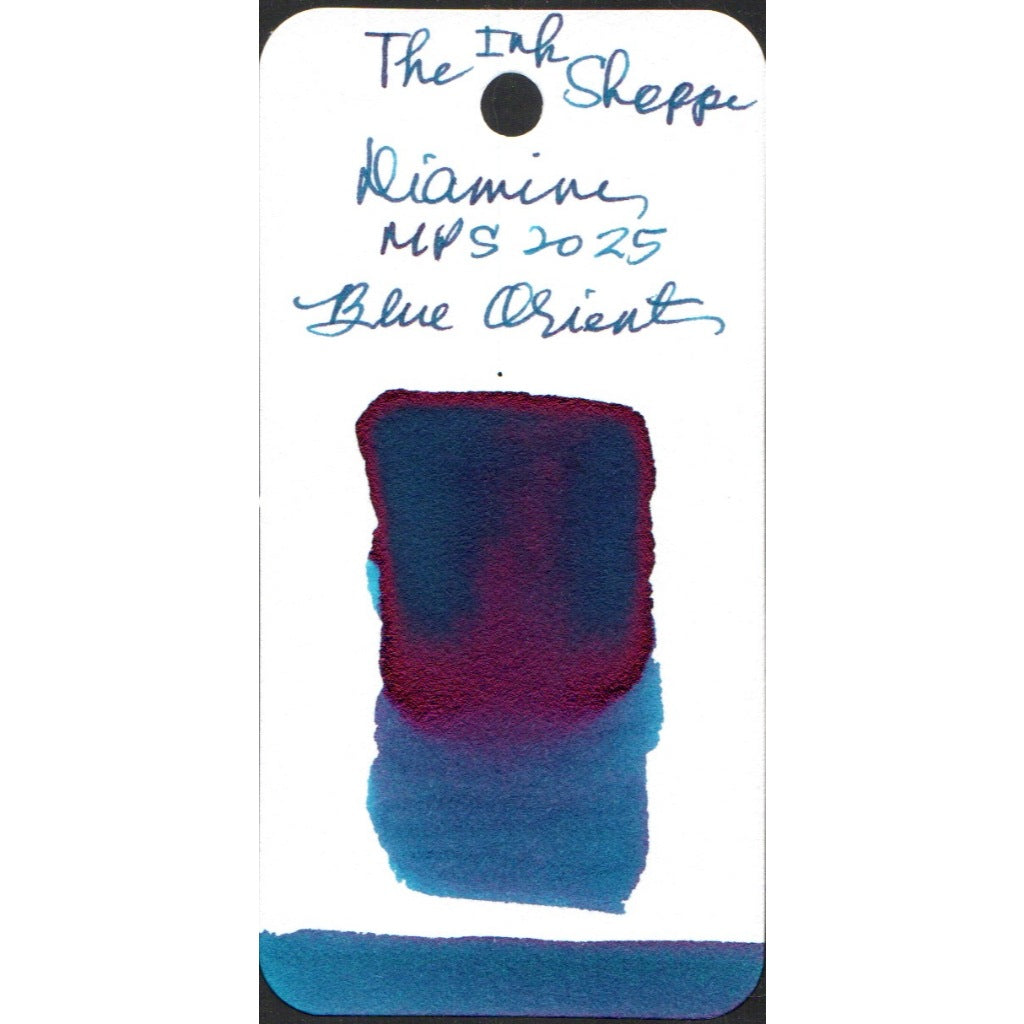 The Ink Shoppe
Diamine
MPS 2025
Blue Orient